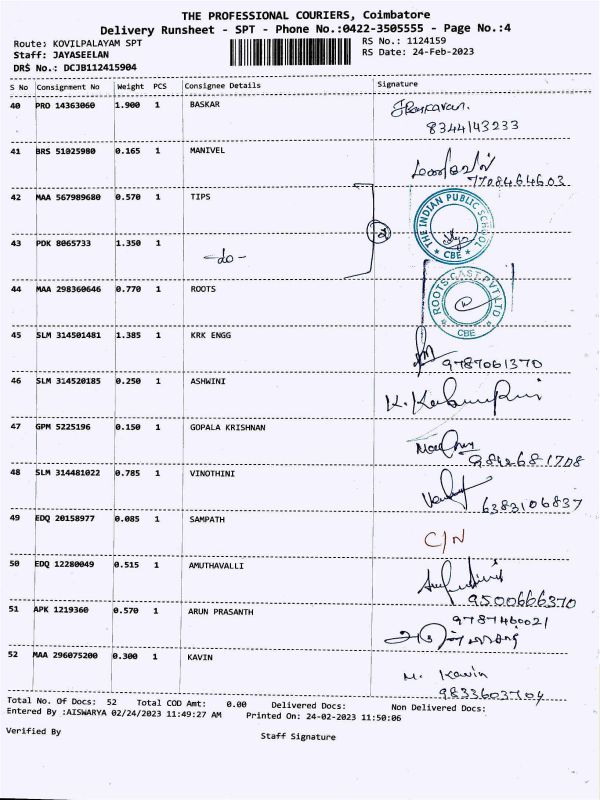 THE PROFESSIONAL COURIERS, Coimbatore
Delivery Runsheet - SPT - Phone No.:0422-3505555 - Page No.:4
Route: KOVILPALAYAM SPT
RS No.: 1124159
Staff: JAYASEELAN
RS Date: 24-Feb-2023
DRS No.: DCJB112415904
S No Consignment No Weight PCS Consignee Details Signature
40 PRO 14363060 1.900 1 BASKAR
8344143233
41 BRS 51025980 0.165 1 MANIVEL
7708464603
42 MAA 567989680 0.570 1 TIPS
THE INDIAN PUBLIC SCHOOL
* CBE *
2
43 PDK 8065733 1.350 1
-do-
44 MAA 298360646 0.770 1 ROOTS
ROOTS CAST PVT LTD
CBE
45 SLM 314501481 1.385 1 KRK ENGG
9787061370
46 SLM 314520185 0.250 1 ASHWINI
47 GPM 5225196 0.150 1 GOPALA KRISHNAN
9842681708
48 SLM 314481022 0.785 1 VINOTHINI
6383106837
49 EDQ 20158977 0.085 1 SAMPATH
C/N
50 EDQ 12280049 0.515 1 AMUTHAVALLI
9500666370
51 APK 1219360 0.570 1 ARUN PRASANTH
9787460021
52 MAA 296075200 0.300 1 KAVIN
M. Kavin
9833603704
Total No. Of Docs: 52 Total COD Amt: 0.00 Delivered Docs: Non Delivered Docs:
Entered By :AISWARYA 02/24/2023 11:49:27 AM Printed On: 24-02-2023 11:50:06
Verified By
Staff Signature